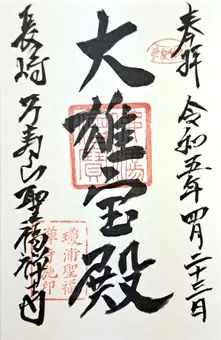 奉拝 令和五年四月二十三日
大雄宝殿
長崎 万寿山聖福禅寺
瓊浦聖福
禅寺施印